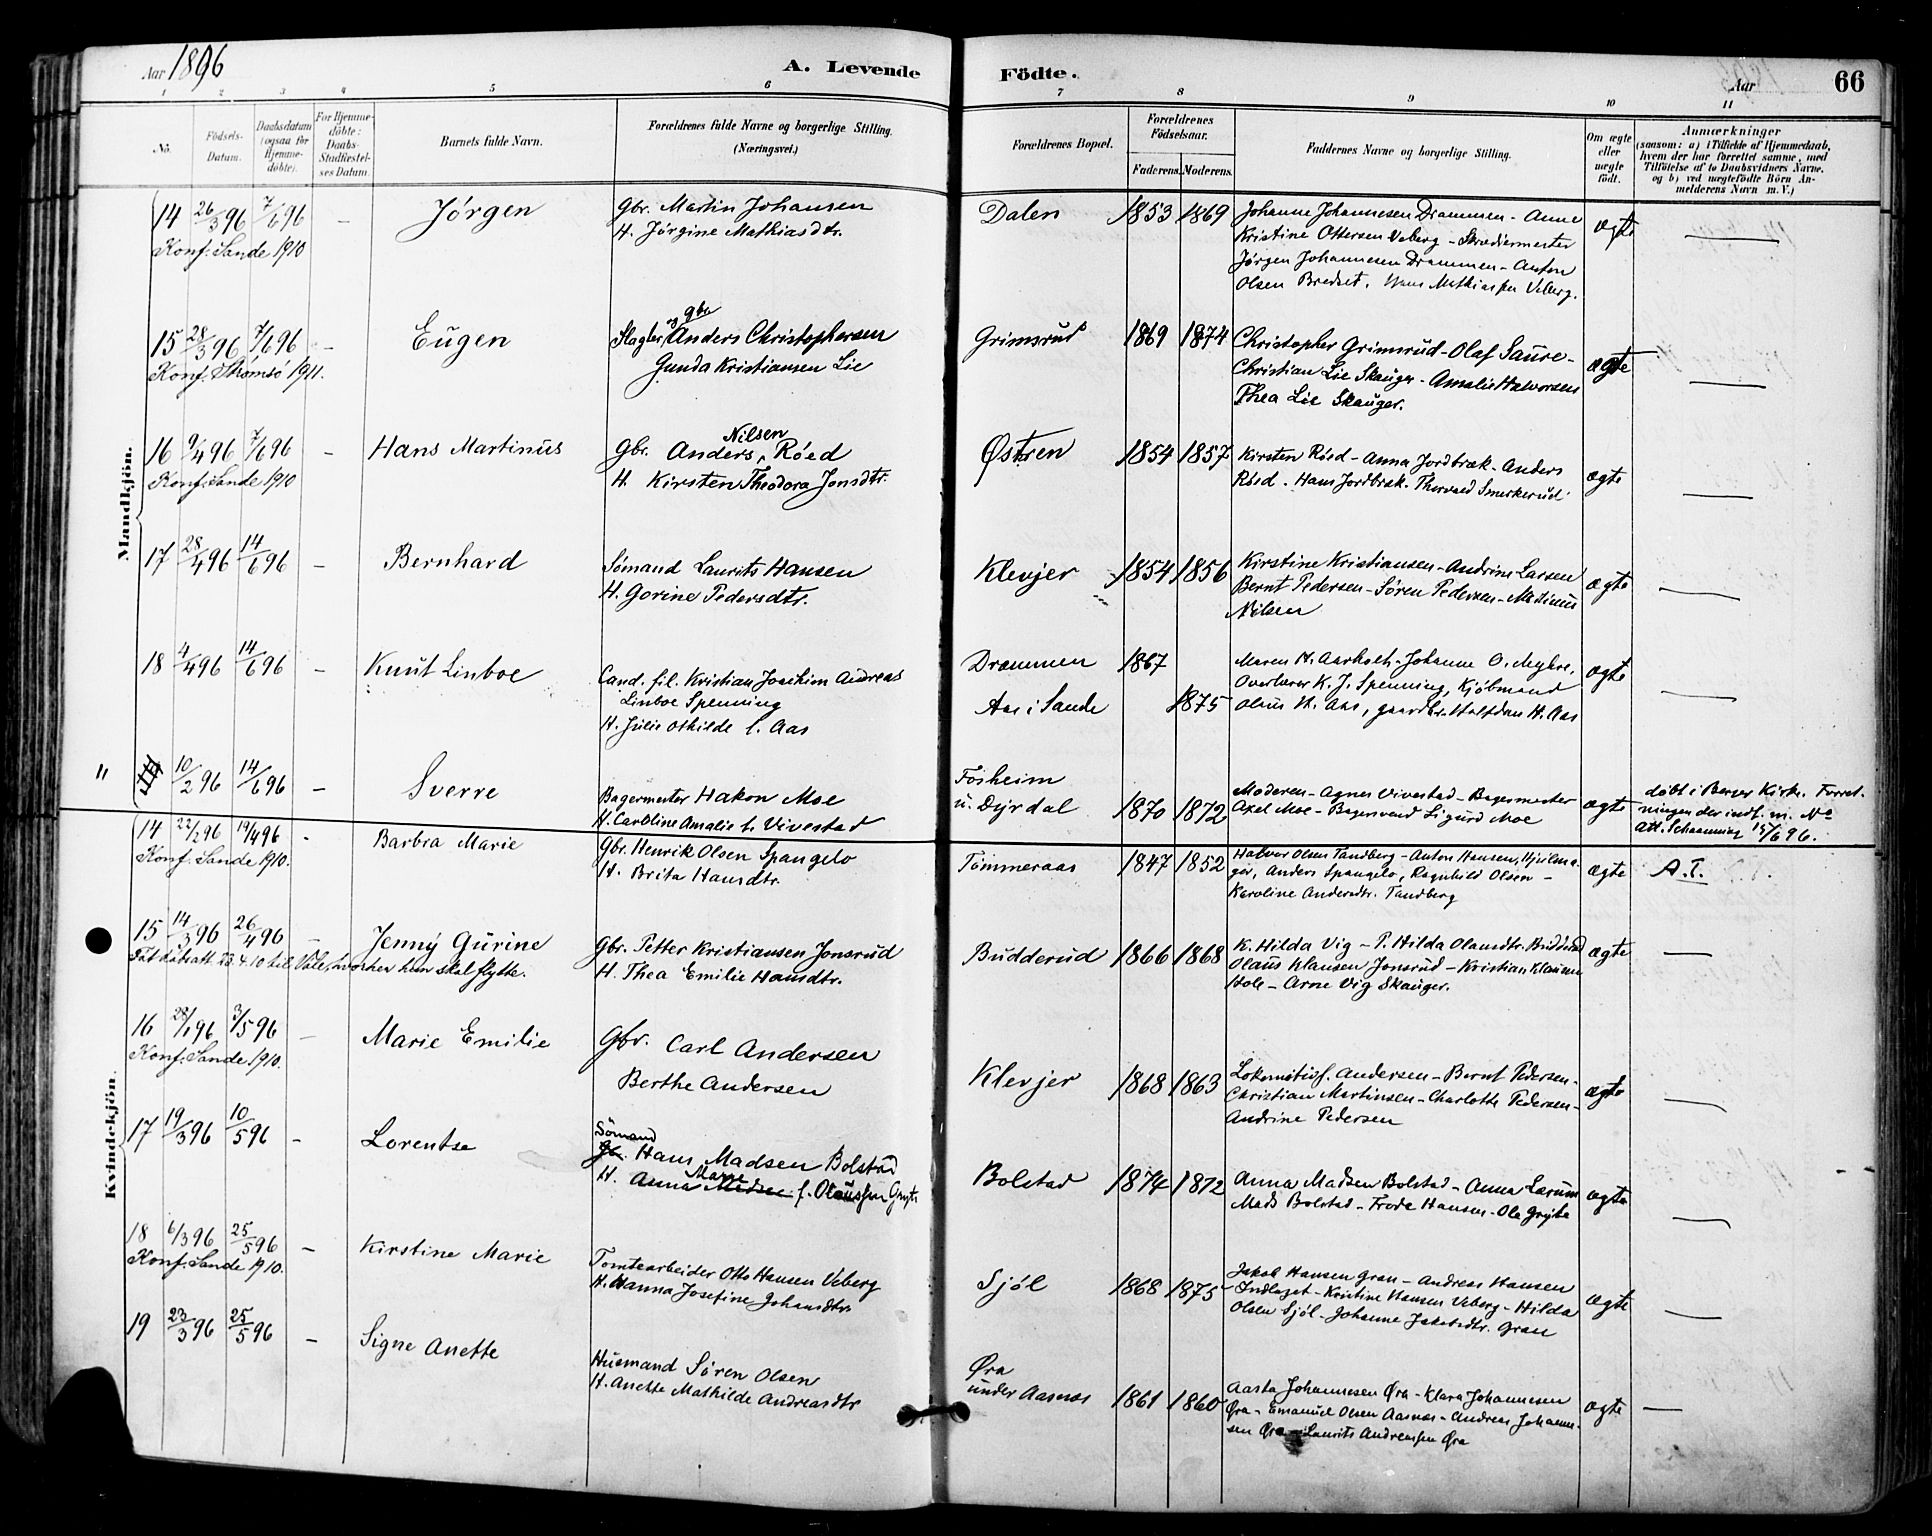 Aar 1896
A. Levende Födte.
Aar
66
1 2 3 4 5 6 7 8 9 10 11
No.
Födsels-Datum.
Daabsdatum (ogsaa for Hjemme-döbte).
For Hjemme-döbte: Daabs-Stadfæstel-ses Datum.
Barnets fulde Navn.
Forældrenes fulde Navne og borgerlige Stilling. (Næringsvei.)
Forældrenes Bopæl.
Forældrenes Födselsaar.
Faderens. Moderens.
Faddernes Navne og borgerlige Stilling.
Om ægte eller uægte födt.
Anmærkninger
(saasom: a) i Tilfælde af Hjemmedaab, hvem der har forrettet samme, med Tilföielse af to Daabsvidners Navne. og b) ved uægtefödte Börn An-melderens Navn m.V.)
Mandkjön.
14 26/3 96 7/6 96 - Jørgen Gbr. Martin Johansen Dalen 1853 1869 Johanne Johannesen Drammen - Anne ægte
H. Jørgine Mathiasdtr. Kristine Ottersen Veberg - Skrædermester
Konf. Sande 1910 Jørgen Johannesen Drammen - Anton
Olsen Bredset. Hans Mathiassen Veberg.
15 28/3 96 7/6 96 - Eugen Slagter og gbr Anders Christophersen Grimsrud 1869 1874 Christopher Grimsrud - Olaf Saure - ægte
Konf. Strømsø 1911. Gunda Kristiansen Lie Christian Lie Skauger - Amalie Halvorsen
Thea Lie Skauger.
16 9/4 96 7/6 96 - Hans Martinus Gbr. Anders Nilsen Røed Østren 1854 1857 Kirsten Røed - Anna Jordbræk - Anders ægte
Konf. Sande 1910 H. Kirsten Theodora Jonsdtr. Røed. Hans Jordbræk. Thorvald Smerkerud
17 28/4 96 14/6 96 - Bernhard Sømand Laurits Hansen Klevjer 1854 1856 Kirstine Kristiansen - Andrine Larsen ægte
H. Gorine Pedersdtr. Bernt Pedersen - Søren Pedersen - Matinus
Nilsen
18 4/4 96 14/6 96 - Knut Linboe Cand. fil. Kristian Joachim Andreas Drammen 1867 Maren H. Aarholt - Johanne O. Myhre, ægte
Linboe Spenning Overlærer K. J. Spenning, Kjøbmand
H. Julie Othilde f. Aas Aas i Sande 1875 Olaus H. Aas, gaardbr. Halfdan H. Aas
" 10/2 96 14/6 96 - Sverre Bagermester Hakon Moe Fosheim u. Dyrdal 1870 1872 Moderen - Agnes Vivestad - Bagermester ægte døbt i Berger Kirke. Forret-
H. Caroline Amalie f. Vivestad Axel Moe - Bagersvend Sigurd Moe ningen der indf. m. No
Att. Schaanning 15/6 96.
Kvindekjön.
14 22/2 96 19/4 96 - Barbra Marie Gbr. Henrik Olsen Spangelo Tømmeraas 1847 1852 Halvor Olsen Tandberg - Anton Hansen, ægte A.T.
Konf. Sande 1910. H. Brita Hansdtr. Anders Spangelo, Ragnhild Olsen -
Karoline Andersdtr. Tandberg
15 14/3 96 26/4 96 Jenny Gurine Gbr. Petter Kristiansen Jonsrud Budderud 1866 1868 K. Hilda Vig - P. Hilda Olausdtr. Budderud ægte
Fåt dåbsatt. 23.4.10 til Våle, hvorhen hun skal flytte. H. Thea Emilie Hansdtr. Olaus Klausen Jonsrud - Kristian Klausen
Hole - Arne Vig Skauger.
16 28/1 96 3/5 96 - Marie Emilie Gbr. Carl Andersen Klevjer 1868 1863 Lokomotivf. Andersen - Bernt Pedersen - ægte
Konf. Sande 1910. Berthe Andersen Christian Martinsen - Charlotte Pedersen -
Andrine Pedersen
17 19/3 96 10/5 96 - Lorentse Sømand Hans Madsen Bolstad Bolstad 1874 1872 Anna Madsen Bolstad - Anna Lerum ægte
H. Anna Marie f. Olaussen Gryte Mads Bolstad - Frode Hansen - Ole Gryte
18 6/3 96 25/5 96 - Kirstine Marie Tomtearbeider Otto Hansen Veberg Sjøl 1868 1875 Jakob Hansen Gran - Andreas Hansen ægte
Konf. Sande 1910. H. Hanna Josefine Johansdtr Indlaget - Kristine Hansen Veberg - Hilda
Olsen Sjøl - Johanne Jakobsdtr. Gran
19 23/3 96 25/5 96 - Signe Anette Husmand Søren Olsen Øra under Aasnæs 1861 1860 Aasta Johannesen Øra - Klara Johannesen ægte
H. Anette Mathilde Andreasdtr Øra - Emanuel Olsen Aasnæs - Andreas Johanne-
sen Øra - Laurits Andreassen Øra